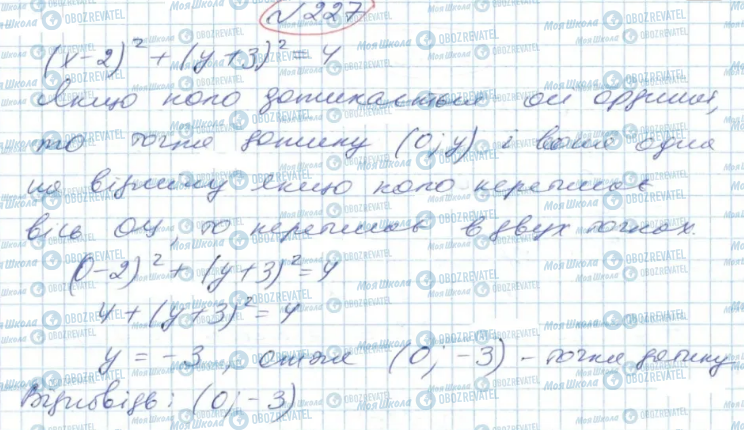 № 227
(x-2)² + (y+3)² = 4
Якщо коло дотикається осі ординат,
то точка дотику (0; y) і вона одна
на відміну якщо коло перетинає
вісь ОУ, то перетинає в двух точках.
(0-2)² + (y+3)² = 4
4 + (y+3)² = 4
y = -3, отже (0; -3) - точка дотику
Відповідь: (0; -3)
Моя Школа OBOZREVATEL